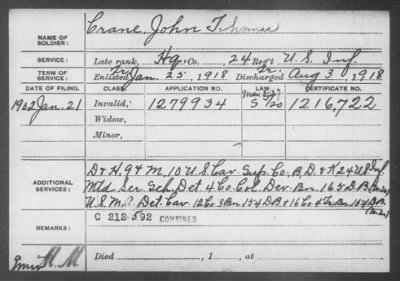 NAME OF SOLDIER: Crane, John Thomas
SERVICE: Late rank, Hq. Co. 24 Reg't U.S. Inf.
TERM OF SERVICE: Enlisted Jan. 25, 1918 Discharged Aug 3, 1918
DATE OF FILING. CLASS. APPLICATION NO. LAW. CERTIFICATE NO.
1902 Jan. 21 Invalid, 1279934 1216,722
Widow,
Minor,
D & H, 9 & M, 10 U.S. Cav. Sup. Co. B, D. & K 24 U.S. Inf.
ADDITIONAL SERVICES: Mtd. Ser. Sch. Det. 4 Co. Col. Dev. Bn. 165 D.B.
U.S.M.A. Det. Cav 12 Co. 3 Bn. 154 D.B. & 16 Co. 4 Bn. 154 D.B.
C 212 592 COMBINED
REMARKS:
H. M
Died , 1 , at